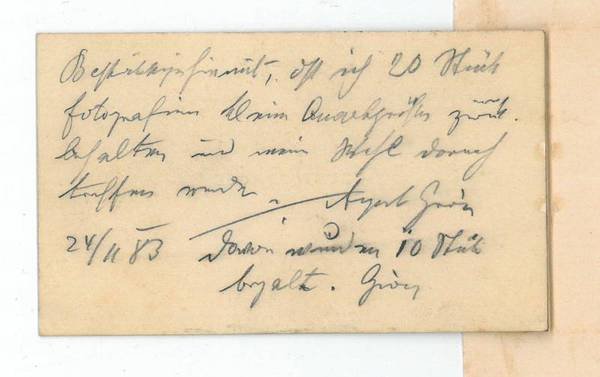 Bestätige hiermit, daß ich 20 Stück
fotografien klein Quartgrößen zurück.
behalten und mein Wahl danach
treffen werde.
24/11 83 Davon wurden 10 Stück
bezalt.